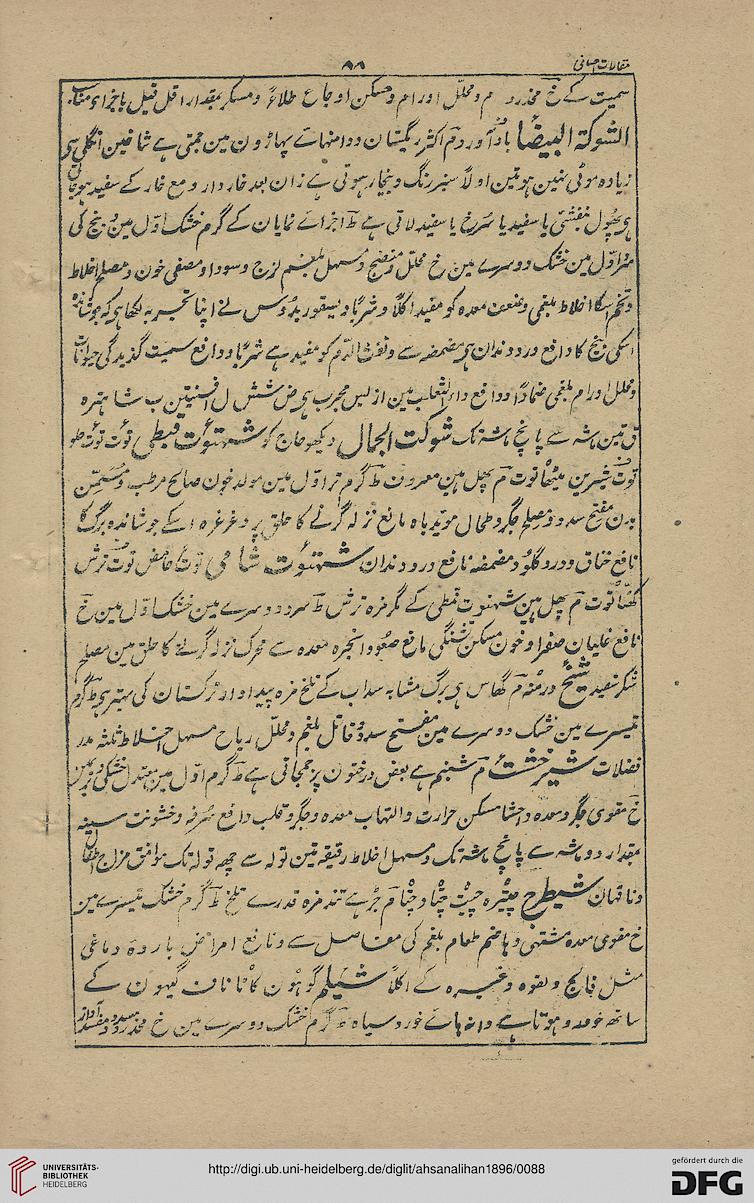 مقالات احسانی
۸۸
سمیت کے خ مخدر و محلل اورام و مسکن اوجاع طلاءً و مسکر بمقدار اقل قلیل باجزای مناسب
الشوکۃ البیضا بادآورد م اکثر ریگستان و دامنہائے پہاڑون مین جمتی ہے شاخین انگلی سی
زیادہ موٹی نہین ہوتین اولاً سبز رنگ و نجار ہوتی ہے زان بعد خاردار و مع خار کے سفید ہوجاتی
ہی پھول بنفشئی یا سفید یا سرخ یا سفید لاتی ہے ط اجزائے نمایان کے گرم خشک اول مین و بیخ کی
سرد اول مین خشک دوسرے مین خ محلل و منضج و مسہل بلغم لزج و سودا و مصفی خون و مصلح اخلاط
و تخم اسکا اخلاط بلغمی و ضعف معدہ کو مفید اکلاً و شرباً دیسقوریدوس نے اپنا تجربہ لکھا ہی کہ جوشاندہ
اسکی بیخ کا دافع درد دندان ہی مضمضہ سے و نفث الدم کو مفید ہے شرباً و دافع سمیت گزیدگی حیوانات
و محلل اورام بلغمی ضماداً و دافع داء الثعلب مین از بس مجرب ہی ض شش ل افسنتین ب شاہترہ
ق تین ماشہ سے پانچ ماشہ تک شوکت الجمال دیکھو حاج کو شہتوت قبطی توت توت حلو
توت شیرین میٹھا توت م پھل ہین معروف ط گرم تر اول مین مولد خون صالح مرطب و مسمن
بدن مفتح سدد و مصلح جگر و طحال موید باہ مانع نزلہ گرنے کا حلق پر و غرغرہ اسکے جوشاندہ برگ کا
نافع خناق و درد گلو و مضمضہ نافع درد دندان شہتوت شامی توت حامض توت ترش
کھٹا توت م پھل ہین شہتوت قبطی کے مگر مزہ ترش ط سرد دوسرے مین خشک اول مین خ
نافع غلیان صفرا و خون مسکن تشنگی مانع صعود ابخرہ معدہ سے محرک نزلہ گرنے کا حلق مین مصلح
شکر سفید شیح درمنہ م گھاس ہی برگ مشابہ سداب کے تلخ مزہ پیداوار ترکستان کی بہتر ہی ط گرم
تیسرے مین خشک دوسرے مین مفتح سدد و قاتل بلغم و محلل ریاح مسہل اخلاط ثلثہ مدر
فضلات شیرخشت م شبنم ہے بعض درختون پر جمجاتی ہے ط گرم اول مین معتدل خشکی و تری مین
خ مقوی جگر و معدہ و احشا مسکن حرارت و التہاب معدہ و جگر و قلب دافع سرفہ و خشونت سینہ
بمقدار دو ماشہ سے پانچ ماشہ تک و مسہل اخلاط رقیقہ تین تولہ سے چھہ تولہ تک موافق مزاج اطفال
و ناقہان شیطرج چیترہ چیت چتا و چتا م جڑ ہے تند مزہ قدرے تلخ ط گرم خشک تیسرے مین
خ مقوی معدہ مشتہی و ہاضم طعام بلغم کی مفاصل سے و نافع امراض باردہ دماغی
مثل فالج و لقوہ وغیرہ کے اکلاً شیلم گوہون کاٹا ناف گیہون کے
ساتھ خودرو ہوتا ہے دانہائے خورد سیاہ ط گرم خشک دوسرے مین خ مخدر
UNIVERSITÄTS-
BIBLIOTHEK
HEIDELBERG
http://digi.ub.uni-heidelberg.de/diglit/ahsanalihan1896/0088
gefördert durch die
DFG